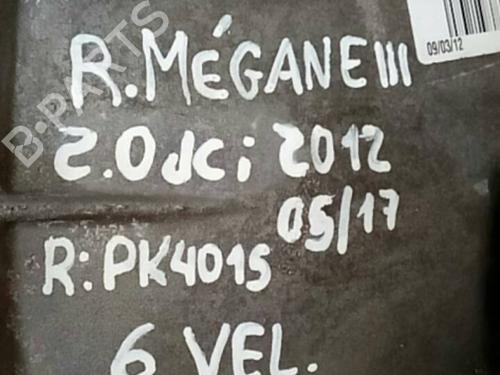 09/03/12
R.MÉGANE III
2.0 dci 2012
05/17
R:PK4015
6 VEL.
B-PARTS